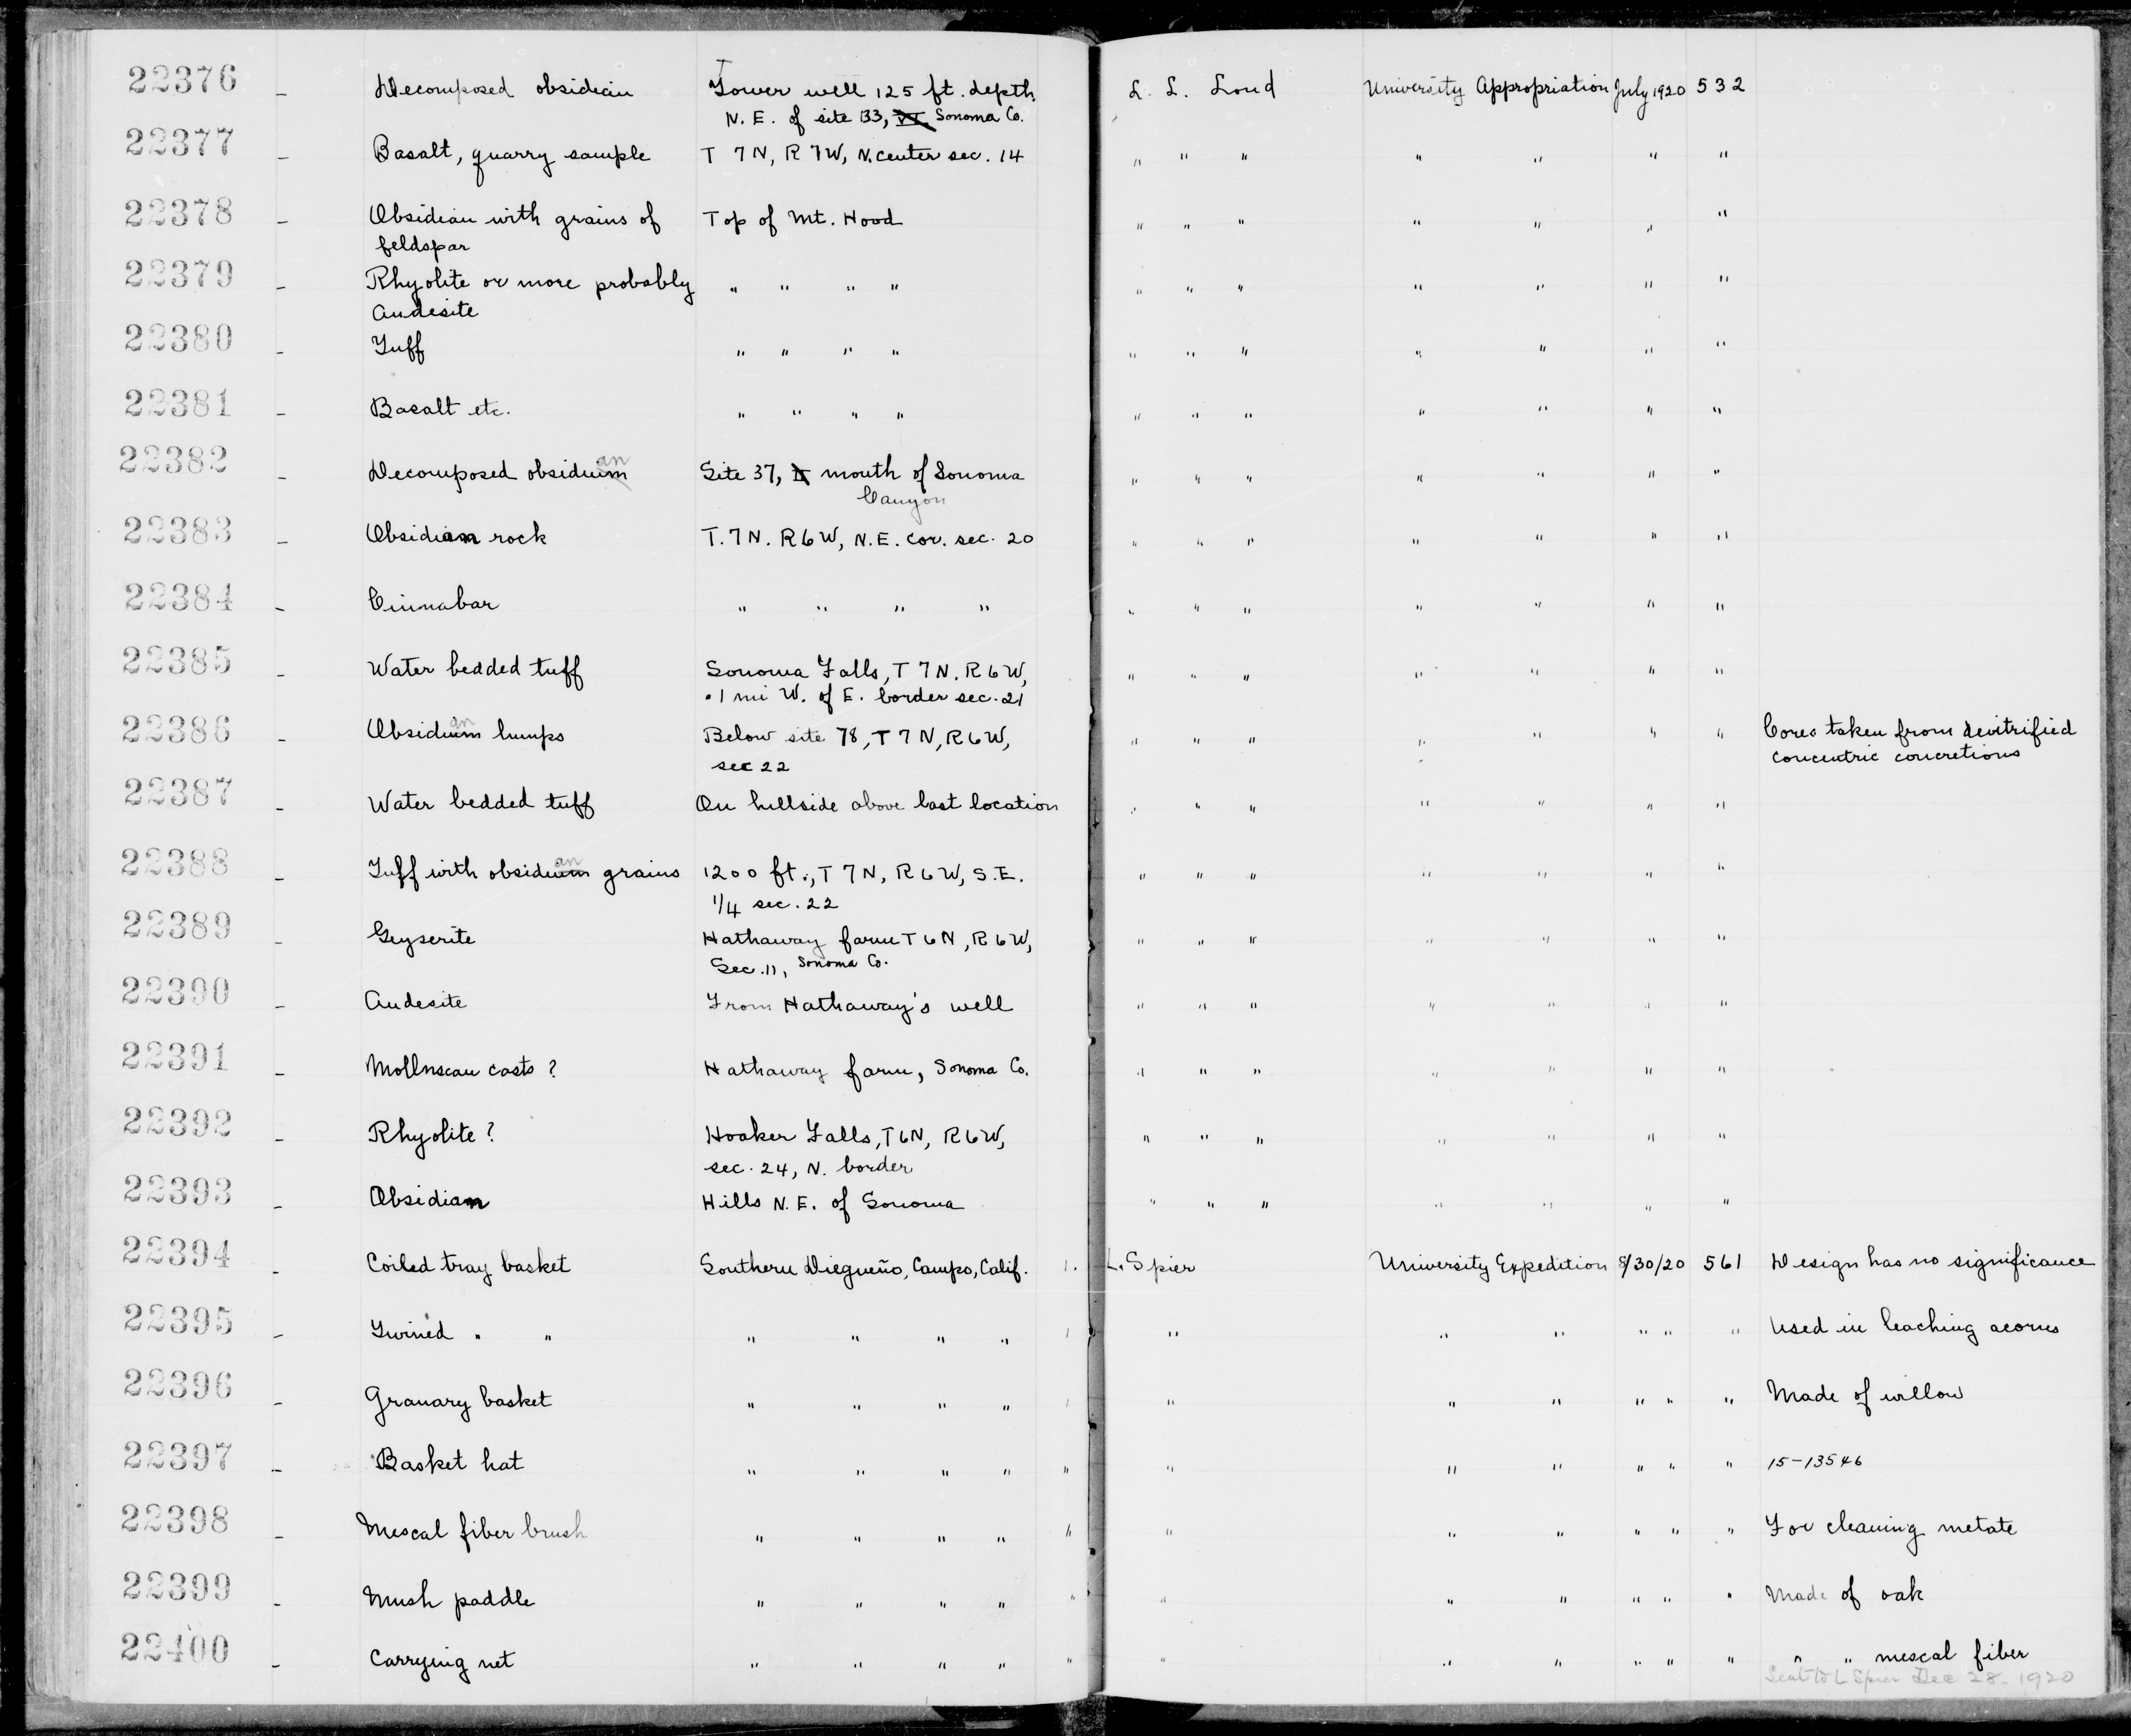 22376 - Decomposed obsidian Tower well 125 ft. depth, L. L. Loud University Appropriation July 1920 532
N. E. of site 133, VI. Sonoma Co.
22377 - Basalt, quarry sample T 7N, R 7W, N. center sec. 14 " " " " " " "
22378 - Obsidian with grains of Top of Mt. Hood " " " " " " "
feldspar
22379 - Rhyolite or more probably " " " " " " " " " " "
Andesite
22380 - Tuff " " " " " " " " " " "
22381 - Basalt etc. " " " " " " " " " " "
22382 - Decomposed obsidium an Site 37, mouth of Sonoma " " " " " " "
Canyon
22383 - Obsidian rock T. 7 N. R 6 W, N.E. cor. sec. 20 " " " " " " "
22384 - Cinnabar " " " " " " " " " " "
22385 - Water bedded tuff Sonoma Falls, T 7 N. R 6 W, " " " " " " "
.1 mi W. of E. border sec. 21
22386 - Obsidium an lumps Below site 78, T 7 N, R 6 W, " " " " " " " Cores taken from devitrified
sec 22 concentric concretions
22387 - Water bedded tuff On hillside above last location " " " " " " "
22388 - Tuff with obsidium an grains 1200 ft., T 7 N, R 6 W, S.E. " " " " " " "
1/4 sec. 22
22389 - Geyserite Hathaway farm T 6 N, R 6 W, " " " " " " "
Sec. 11, Sonoma Co.
22390 - Andesite From Hathaway's well " " " " " " "
22391 - Molluscan casts ? Hathaway farm, Sonoma Co. " " " " " " "
22392 - Rhyolite ? Hooker Falls, T 6 N, R 6 W, " " " " " " "
sec. 24, N. border
22393 - Obsidian Hills N. E. of Sonoma " " " " " " "
22394 - Coiled tray basket Southern Diegueño, Campo, Calif. 1. L. Spier University Expedition 8/30/20 561 Design has no significance
22395 - Twined " " " " " " 1 " " " " " " Used in leaching acorns
22396 - Granary basket " " " " 1 " " " " " " Made of willow
22397 - Basket hat " " " " " " " " " " " 15-13546
22398 - Mescal fiber brush " " " " " " " " " " " For cleaning metate
22399 - Mush paddle " " " " " " " " " " " Made of oak
22400 - Carrying net " " " " " " " " " " " " " mescal fiber
Sent to L Spier Dec 28. 1920